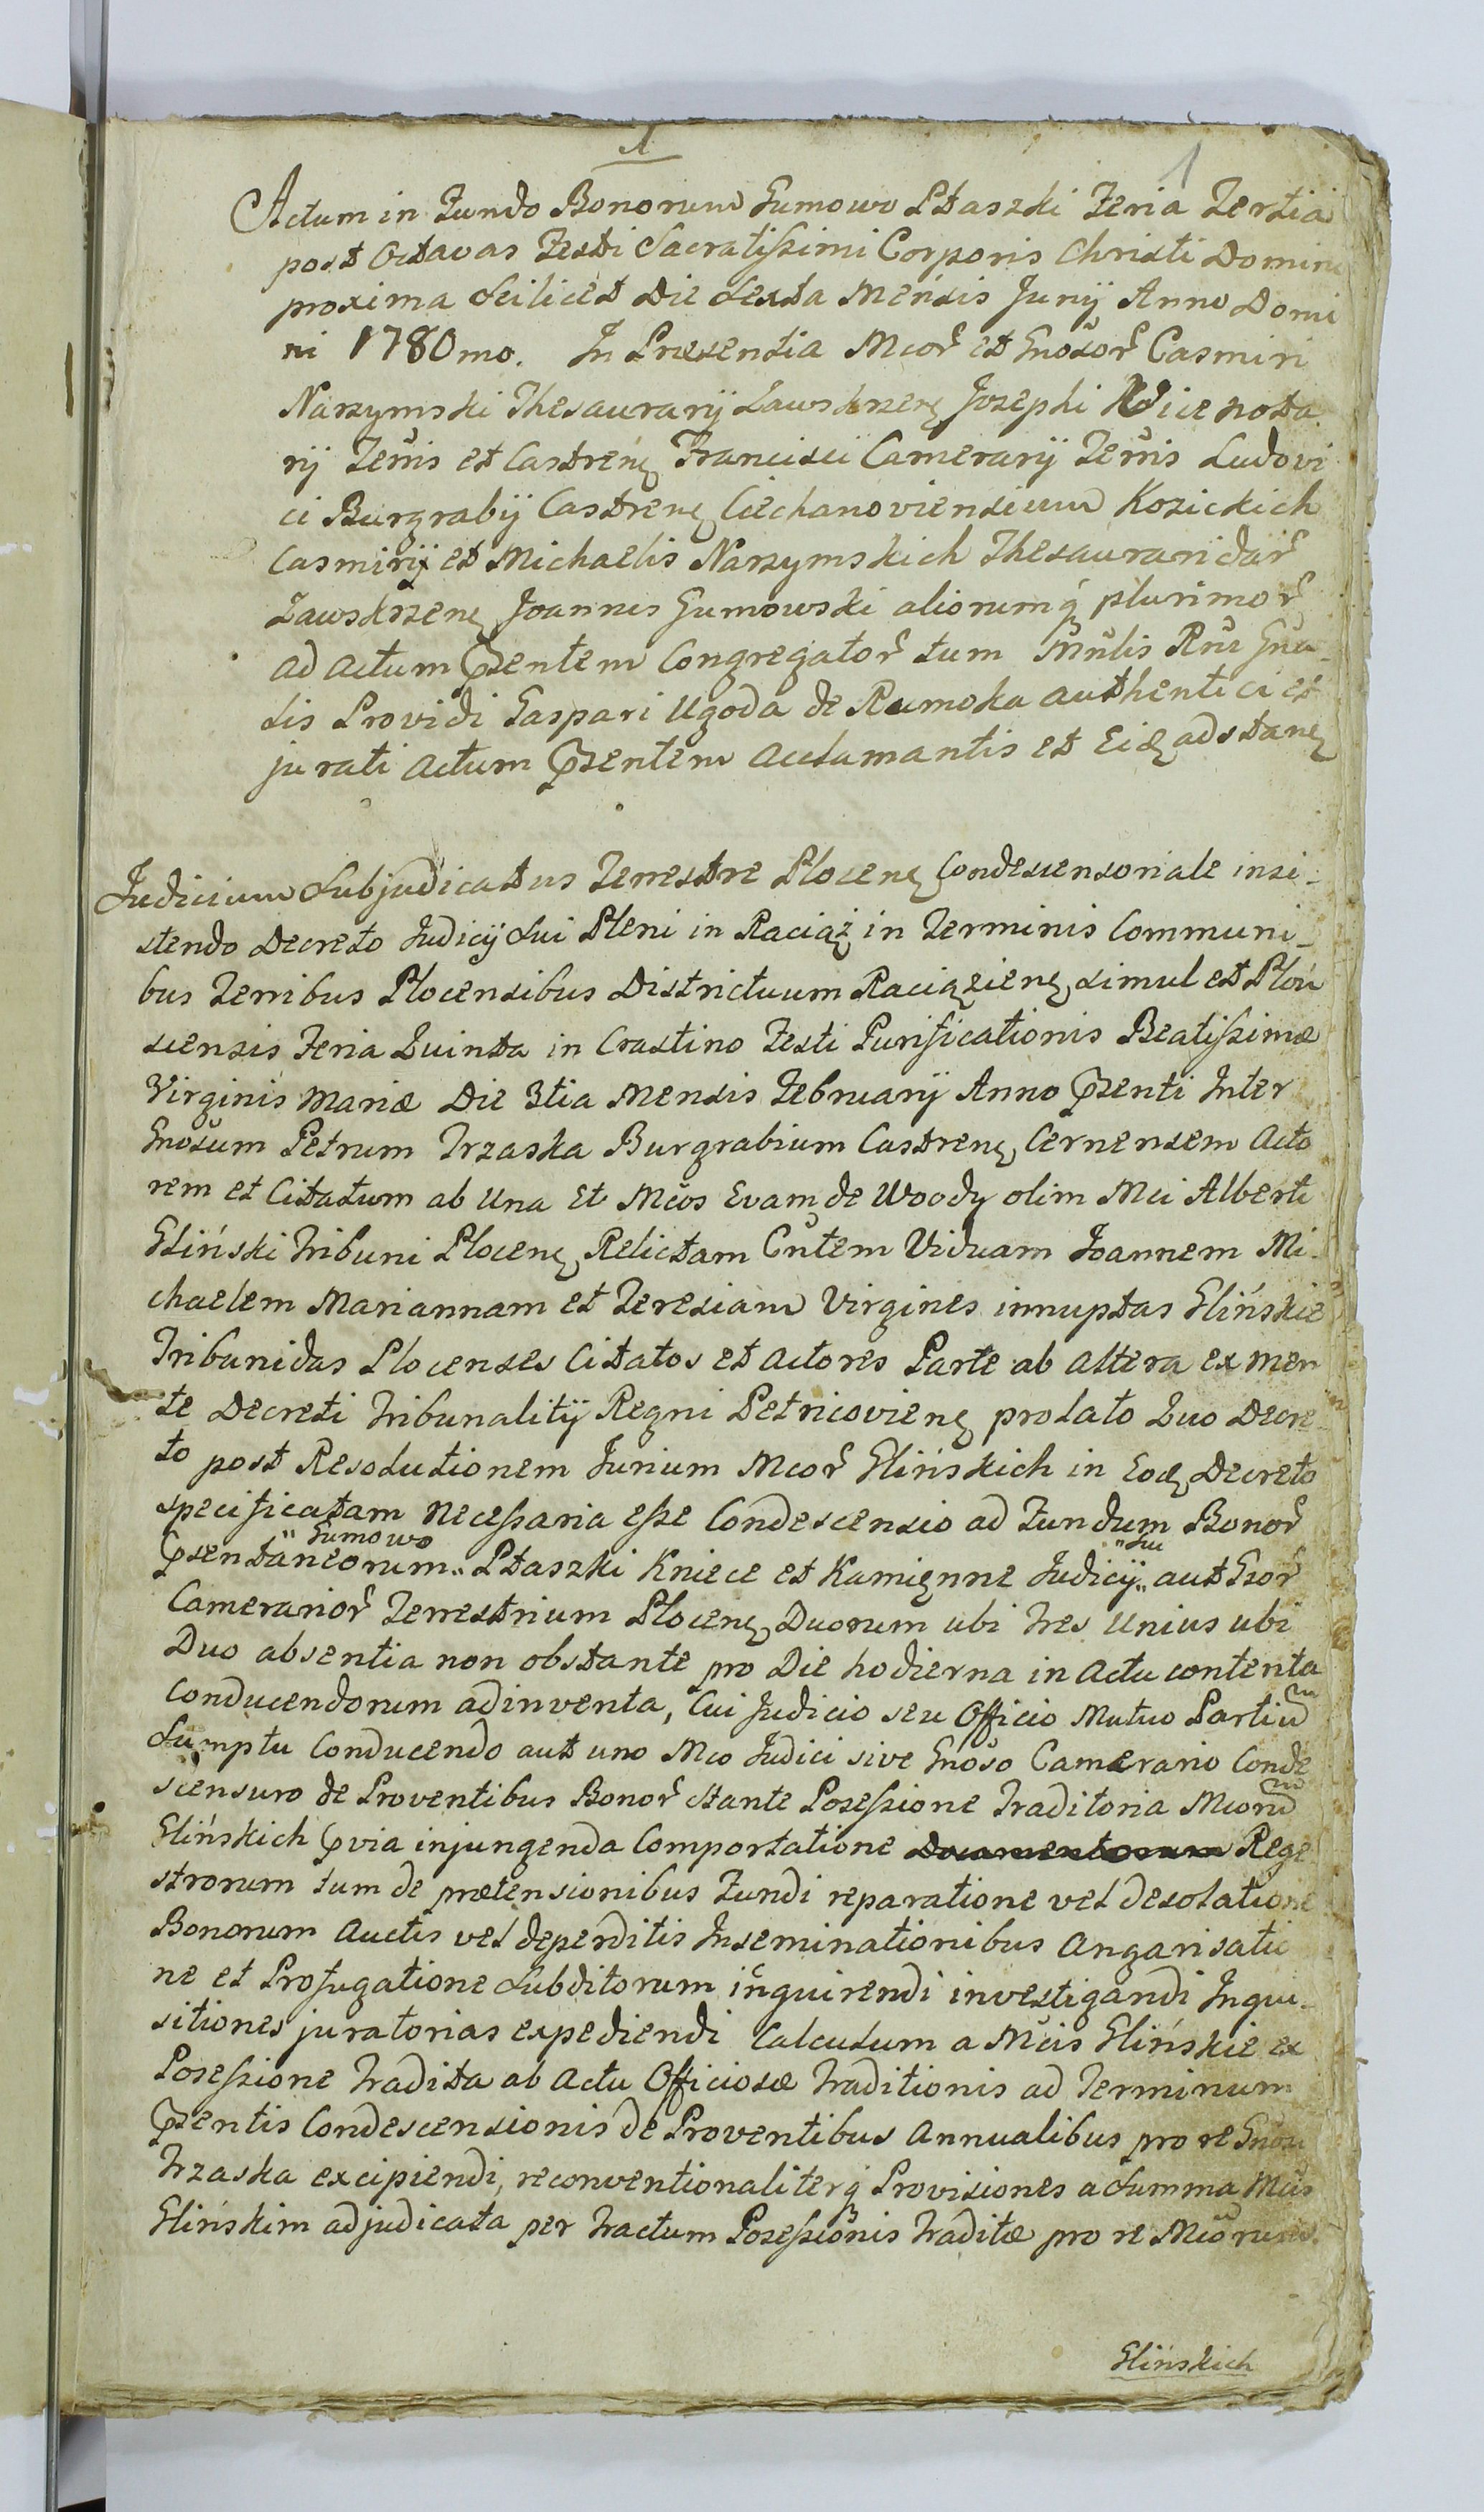 1
1
Actum in Fundo Bonorum Gumowo Ptaszki Feria Tertia
post Octavas Festi Sacratissimi Corporis Christi Domini
proxima scilicet Die Sexta Mensis Junij Anno Domi
ni 1780mo. In Præsentia Mcor̃ et Gnosor̃ Casmiri
Narzymski Thesaurarij Zawskrzenę Josephi Vice nota
rij Terris et Castrenę Francisci Camerarij Terris Ludovi
ci Burgrabij Castrenę Ciechanoviensium Kosickich
Casmirij et Michaelis Narzymskich Thesauraridar̃
Zawskrzenę Joannis Gumowski aliorumq̃ plurimor̃
ad actum Pzentem Congregator̃ tum Mnlis Rñi Gña
lis Providi Gaspari Ugoda de Rumoka authentici et
jurati actum Pzentem acclamantis et Eidę adstanę
Judicium Subjudicatus Terrestre Plocenę Condescensoriale insi-
stendo Decreto Judicij Sui Pleni in Raciąż in Terminis Communi-
bus Terribus Plocensibus Districtuum Raciązienę simul et Płoń
scensis Feria Quinta in Crastino Festi Purificationis Beatissimæ
Virginis Mariæ Die 3tia Mensis Februarij Anno Pzenti Inter
Gnosum Petrum Trzaska Burgrabium Castrenę Cernensem Acto
rem et Citatum ab una Et Mcos Evam de Woody olim Mci Alberti
Gliński Tribuni Plocenę Relictam Cñtem Viduam Joannem Mi-
chaelem Mariannam et Teresiam Virgines innuptas Glińskie
Tribunidas Plocenses Citatos et actores Parte ab altera ex men
te Decreti Tribunalitij Regni Petricovienę prolato Quo Decre-
to post Resolutionem Jurium Mcor̃ Glińskich in Eodę Decreto
specificatam necessaria esse Condescensio ad Fundum Bonor̃
"Gumowo "Su
Pzentaneorum" Ptaszki Kniece et Kamięnne Judicij" aut Gsor̃
Camerarior̃ Terrestrium Plocenę Duorum ubi tres Unius ubi
Duo absentia non obstante pro Die hodierna in Actu contenta
Conducendorum adinventa, Cui Judicio seu Officio Mutuo Partiu͠m
Sumptu Conducendo aut uno Mco Judici sive Gnoso Camerario Conde
scensuro de Proventibus Bonor̃ stante Posessione Traditoria Mcoru͠m
Glińskich Pvia injungenda Comportatione Documentorum Rege
strorum tum de prætensionibus Fundi reparatione vel desolatione
Bonorum auctis vel deperditis Inseminationibus Angarisatio
ne et Profugatione Subditorum inquirendi investigandi Inqui-
sitiones juratorias expediendi Calculum a Mcis Glińskie ex
Posessione Tradita ab actu Officiosæ Traditionis ad Terminum
Pzentis Condescensionis de Proventibus Annualibus pro re Gnosi
Trzaska excipiendi, reconventionaliterq̃ Provisiones a Summa Mcis
Glińskim adjudicata per tractum Posessionis Traditæ pro re Mcorum
Glińskich